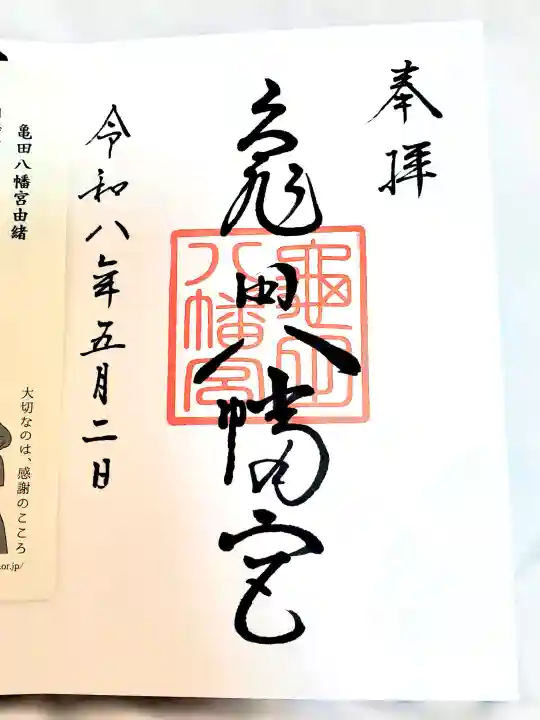 奉拝
亀田八幡宮
亀田八幡宮
令和八年五月二日
亀田八幡宮由緒
大切なのは、感謝のこころ
.or.jp/